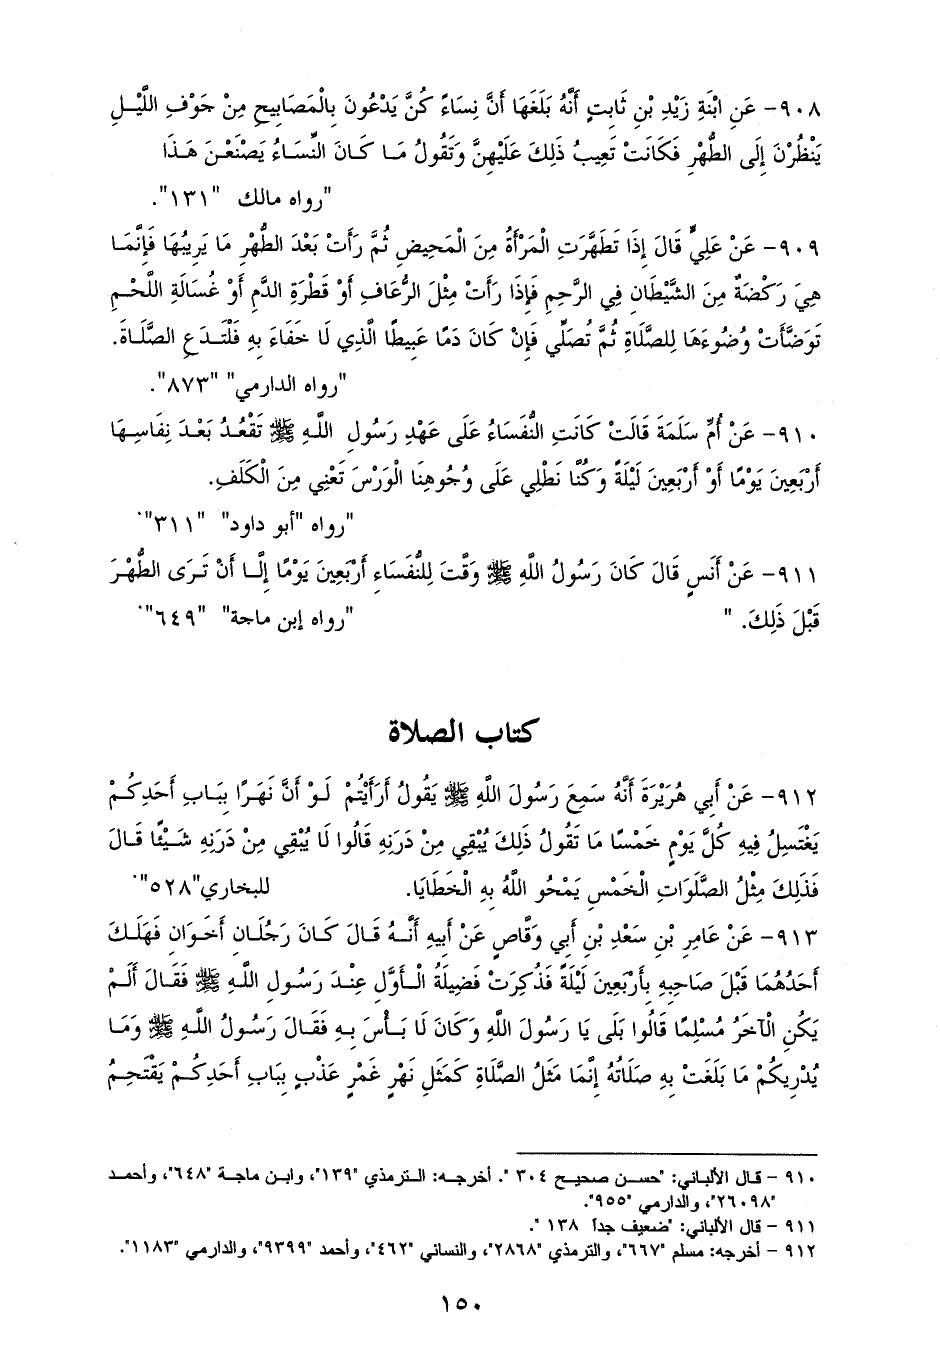 ٩٠٨- عَنِ ابْنَةِ زَيْدِ بْنِ ثَابِتٍ أَنَّهُ بَلَغَهَا أَنَّ نِسَاءً كُنَّ يَدْعُونَ بِالْمَصَابِيحِ مِنْ جَوْفِ اللَّيْلِ
يَنْظُرْنَ إِلَى الطُّهْرِ فَكَانَتْ تَعِيبُ ذَلِكَ عَلَيْهِنَّ وَتَقُولُ مَا كَانَ النِّسَاءُ يَصْنَعْنَ هَذَا
"رواه مالك "١٣١".
٩٠٩- عَنْ عَلِيٍّ قَالَ إِذَا تَطَهَّرَتِ الْمَرْأَةُ مِنَ الْمَحِيضِ ثُمَّ رَأَتْ بَعْدَ الطُّهْرِ مَا يَرِيبُهَا فَإِنَّمَا
هِيَ رَكْضَةٌ مِنَ الشَّيْطَانِ فِي الرَّحِمِ فَإِذَا رَأَتْ مِثْلَ الرُّعَافِ أَوْ قَطْرَةِ الدَّمِ أَوْ غُسَالَةِ اللَّحْمِ
تَوَضَّأَتْ وُضُوءَهَا لِلصَّلَاةِ ثُمَّ تُصَلِّي فَإِنْ كَانَ دَمًا عَبِيطًا الَّذِي لَا خَفَاءَ بِهِ فَلْتَدَعِ الصَّلَاةَ.
"رواه الدارمي" "٨٧٣".
٩١٠- عَنْ أُمِّ سَلَمَةَ قَالَتْ كَانَتِ النُّفَسَاءُ عَلَى عَهْدِ رَسُولِ اللَّهِ ﷺ تَقْعُدُ بَعْدَ نِفَاسِهَا
أَرْبَعِينَ يَوْمًا أَوْ أَرْبَعِينَ لَيْلَةً وَكُنَّا نَطْلِي عَلَى وُجُوهِنَا الْوَرْسَ تَعْنِي مِنَ الْكَلَفِ.
"رواه "أبو داود" "٣١١".
٩١١- عَنْ أَنَسٍ قَالَ كَانَ رَسُولُ اللَّهِ ﷺ وَقَّتَ لِلنُّفَسَاءِ أَرْبَعِينَ يَوْمًا إِلَّا أَنْ تَرَى الطُّهْرَ
قَبْلَ ذَلِكَ. " "رواه إبن ماجة" "٦٤٩".
كتاب الصلاة
٩١٢- عَنْ أَبِي هُرَيْرَةَ أَنَّهُ سَمِعَ رَسُولَ اللَّهِ ﷺ يَقُولُ أَرَأَيْتُمْ لَوْ أَنَّ نَهَرًا بِبَابِ أَحَدِكُمْ
يَغْتَسِلُ فِيهِ كُلَّ يَوْمٍ خَمْسًا مَا تَقُولُ ذَلِكَ يُبْقِي مِنْ دَرَنِهِ قَالُوا لَا يُبْقِي مِنْ دَرَنِهِ شَيْئًا قَالَ
فَذَلِكَ مِثْلُ الصَّلَوَاتِ الْخَمْسِ يَمْحُو اللَّهُ بِهِ الْخَطَايَا. للبخاري"٥٢٨".
٩١٣- عَنْ عَامِرِ بْنِ سَعْدِ بْنِ أَبِي وَقَّاصٍ عَنْ أَبِيهِ أَنَّهُ قَالَ كَانَ رَجُلَانِ أَخَوَانِ فَهَلَكَ
أَحَدُهُمَا قَبْلَ صَاحِبِهِ بِأَرْبَعِينَ لَيْلَةً فَذُكِرَتْ فَضِيلَةُ الْأَوَّلِ عِنْدَ رَسُولِ اللَّهِ ﷺ فَقَالَ أَلَمْ
يَكُنِ الْآخَرُ مُسْلِمًا قَالُوا بَلَى يَا رَسُولَ اللَّهِ وَكَانَ لَا بَأْسَ بِهِ فَقَالَ رَسُولُ اللَّهِ ﷺ وَمَا
يُدْرِيكُمْ مَا بَلَغَتْ بِهِ صَلَاتُهُ إِنَّمَا مَثَلُ الصَّلَاةِ كَمَثَلِ نَهْرٍ غَمْرٍ عَذْبٍ بِبَابِ أَحَدِكُمْ يَقْتَحِمُ
٩١٠ - قال الألباني: "حسن صحيح ٣٠٤ ". أخرجه: الترمذي "١٣٩"، وابن ماجة "٦٤٨"، وأحمد
"٢٦٠٩٨"، والدارمي "٩٥٥".
٩١١ - قال الألباني: "ضعيف جداً ١٣٨ ".
٩١٢ - أخرجه: مسلم "٦٦٧"، والترمذي "٢٨٦٨"، والنسائي "٤٦٢"، وأحمد "٩٣٩٩"، والدارمي "١١٨٣".
١٥٠